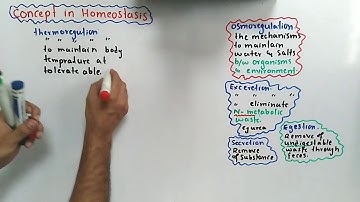 Concept in Homeostasis
thermoregultion
" " " "
to maintain body
temprature at
tolerate able.
Osmoregulation
the mechanisms
to maintain
water & salts
b/w organisms
& environment
Excretion
" " " "
" eliminate
N- metabolic
waste.
eg urea
Secretion
Remove
of substance
Egestion.
Remove of
undigestable
waste through
feces.